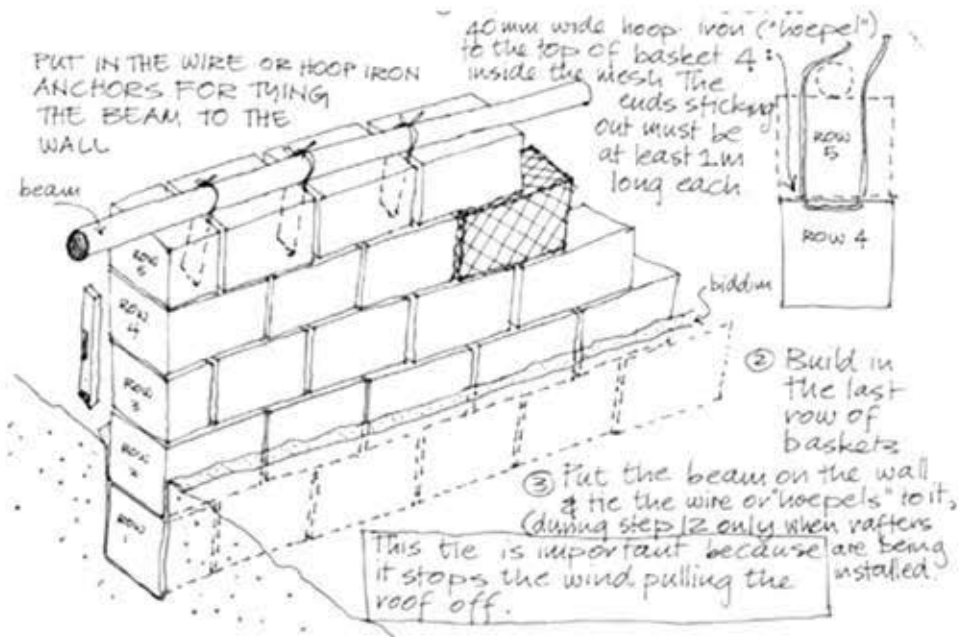 PUT IN THE WIRE OR HOOP IRON
ANCHORS FOR TYING
THE BEAM TO THE
WALL
beam
40mm wide hoop iron ("hoepel")
to the top of basket 4
inside the mesh The
ends sticking
out must be
at least 1m
long each
ROW
5
ROW 4
ROW
5
ROW
4
ROW
3
ROW
2
ROW
1
biddim
② Build in
the last
row of
baskets
③ Put the beam on the wall
& tie the wire or "hoepels" to it,
(during step 12 only when rafters
are being
installed.
This tie is important because
it stops the wind pulling the
roof off.